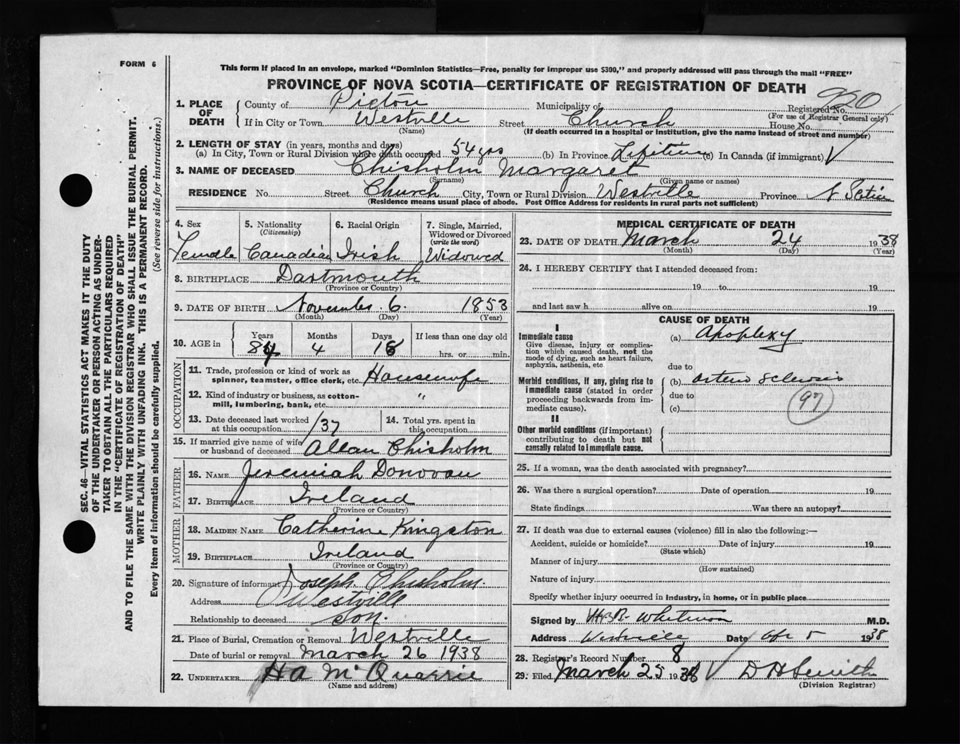 FORM 6
This form if placed in an envelope, marked "Dominion Statistics—Free, penalty for improper use $300," and properly addressed will pass through the mail "FREE"
PROVINCE OF NOVA SCOTIA—CERTIFICATE OF REGISTRATION OF DEATH
920
1. PLACE OF DEATH
County of Pictou Municipality of Registered No.
(For use of Registrar General only)
If in City or Town Westville Street Church House No.
(Name) (If death occurred in a hospital or institution, give the name instead of street and number)
2. LENGTH OF STAY (in years, months and days)
(a) In City, Town or Rural Division where death occurred 54 yrs (b) In Province Lifetime (c) In Canada (if immigrant)
3. NAME OF DECEASED Chisholm Margaret
(Surname) (Given name or names)
RESIDENCE No. Street Church City, Town or Rural Division Westville Province N Scotia
(Residence means usual place of abode. Post Office Address for residents in rural parts not sufficient)
4. Sex 5. Nationality (Citizenship) 6. Racial Origin 7. Single, Married, Widowed or Divorced (write the word)
Female Canadian Irish Widowed
8. BIRTHPLACE Dartmouth
(Province or Country)
9. DATE OF BIRTH November 6 1853
(Month) (Day) (Year)
10. AGE in Years Months Days If less than one day
84 4 18 hrs. or min.
OCCUPATION
11. Trade, profession or kind of work as spinner, teamster, office clerk, etc. Housewife
12. Kind of industry or business, as cotton-mill, lumbering, bank, etc. "
13. Date deceased last worked at this occupation /37 14. Total yrs. spent in this occupation
15. If married give name of wife or husband of deceased Allan Chisholm
FATHER
16. NAME Jeremiah Donovan
17. BIRTHPLACE Ireland
(Province or Country)
MOTHER
18. MAIDEN NAME Catherine Kingston
19. BIRTHPLACE Ireland
(Province or Country)
20. Signature of informant Joseph Chisholm
Address Westville
Relationship to deceased Son.
21. Place of Burial, Cremation or Removal Westville
Date of burial or removal March 26 1938
22. UNDERTAKER H A McQuarrie
(Name and address)
MEDICAL CERTIFICATE OF DEATH
23. DATE OF DEATH March 24 1938
(Month) (Day) (Year)
24. I HEREBY CERTIFY that I attended deceased from:
19 to 19
and last saw h alive on 19
CAUSE OF DEATH
I
Immediate cause
Give disease, injury or complication which caused death, not the mode of dying, such as heart failure, asphyxia, asthenia, etc
(a) Apoplexy
due to
Morbid conditions, if any, giving rise to immediate cause (stated in order proceeding backwards from immediate cause).
(b) arterio sclerosis
due to
(c)
97
II
Other morbid conditions (if important) contributing to death but not causally related to immediate cause.
25. If a woman, was the death associated with pregnancy?
26. Was there a surgical operation? Date of operation 19
State findings Was there an autopsy?
27. If death was due to external causes (violence) fill in also the following:—
Accident, suicide or homicide? Date of injury 19
(State which)
Manner of injury
(How sustained)
Nature of injury
Specify whether injury occurred in industry, in home, or in public place
Signed by Whitman M.D.
Address Westville Date Apr 5 1938
28. Registrar's Record Number 8
29. Filed March 25 1938 D H Smith
(Division Registrar)
SEC. 46—VITAL STATISTICS ACT MAKES IT THE DUTY
OF THE UNDERTAKER OR PERSON ACTING AS UNDER-
TAKER TO OBTAIN ALL THE PARTICULARS REQUIRED
IN THE "CERTIFICATE OF REGISTRATION OF DEATH"
AND TO FILE THE SAME WITH THE DIVISION REGISTRAR WHO SHALL ISSUE THE BURIAL PERMIT.
WRITE PLAINLY WITH UNFADING INK. THIS IS A PERMANENT RECORD.
Every item of information should be carefully supplied. (See reverse side for instructions.)